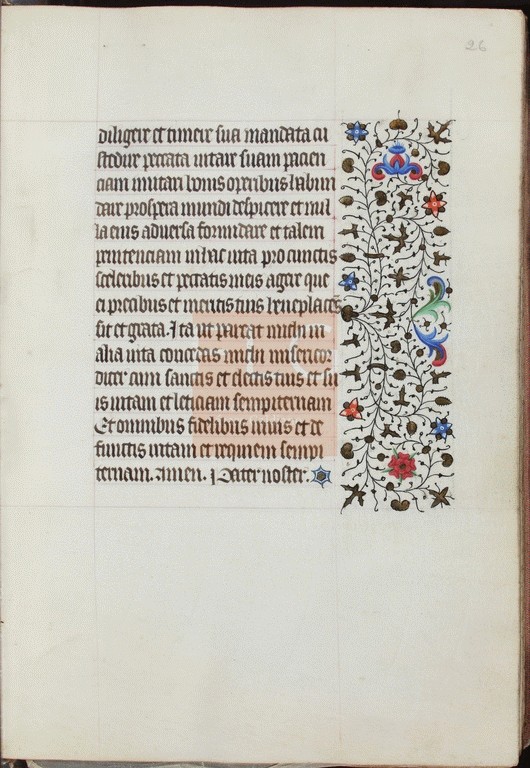 26
diligere et timere sua mandata cu
stodire peccata vitare suam pacien
ciam imitari bonis operibus habun
dare prospera mundi despicere et nul
la eius adversa formidare et talem
penitenciam in hac vita pro cunctis
sceleribus et peccatis meis agere que
ei precibus et meritis tuis beneplacens
fit et grata. Ita ut parcat michi in
alia vita concedens michi misericor
diter cum sanctis et electis tuis et su
is vitam et leticiam sempiternam
Et omnibus fidelibus vivis et de
functis vitam et requiem sempi
ternam. Amen. Pater noster.